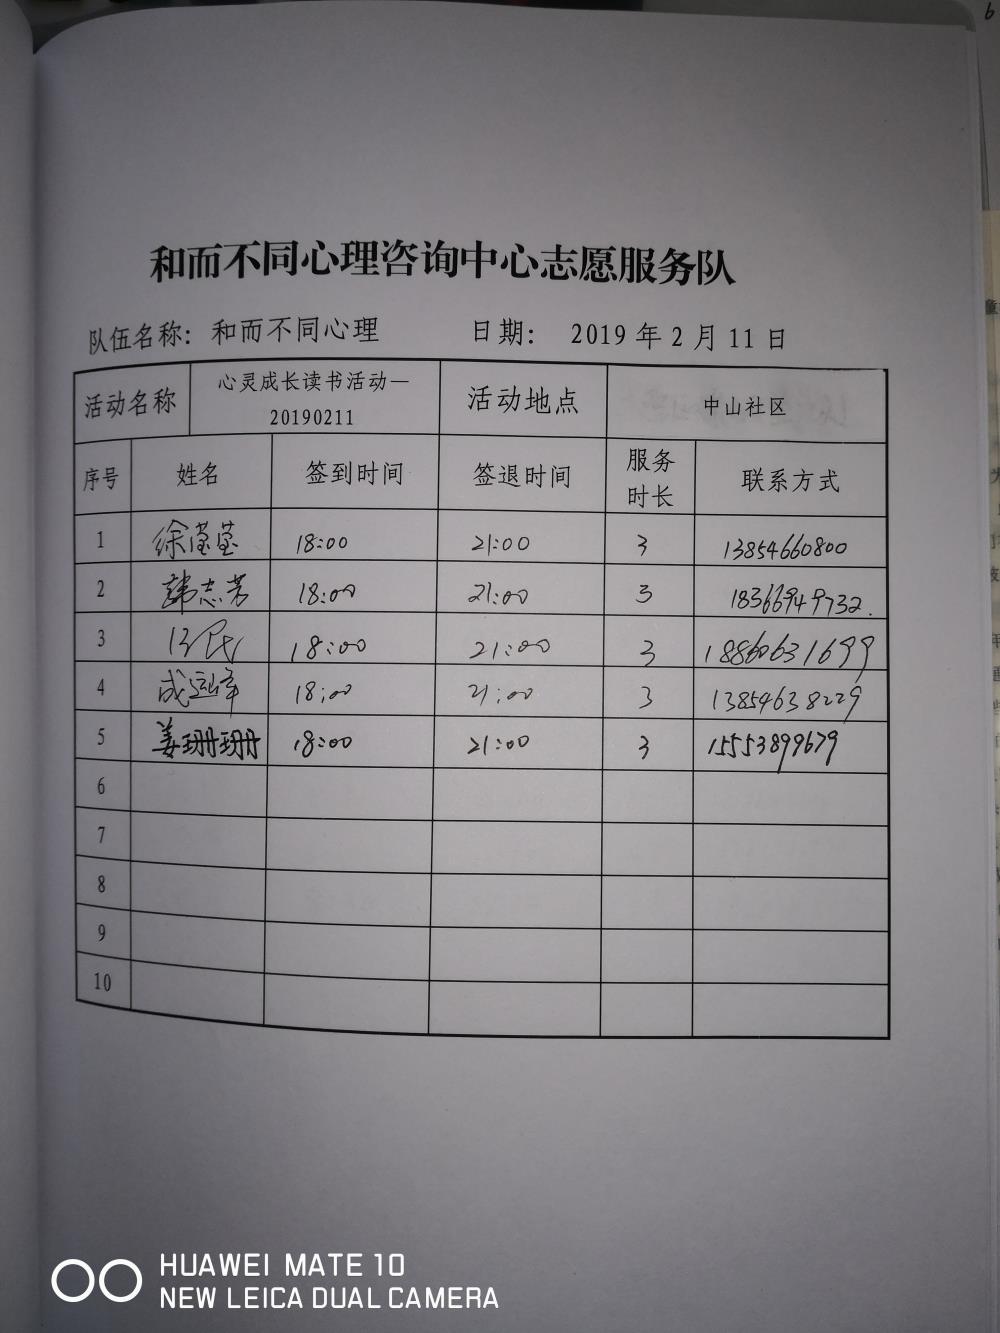 和而不同心理咨询中心志愿服务队
队伍名称：和而不同心理 日期： 2019 年 2 月 11 日
活动名称 心灵成长读书活动— 活动地点 中山社区
20190211
序号 姓名 签到时间 签退时间 服务时长 联系方式
1 徐莹莹 18:00 21:00 3 13854660800
2 韩志芳 18:00 21:00 3 18366949732.
3 18:00 21:00 3 18860631699
4 18:00 21:00 3 13854638229
5 姜珊珊 18:00 21:00 3 15553899679
6
7
8
9
10
HUAWEI MATE 10
NEW LEICA DUAL CAMERA